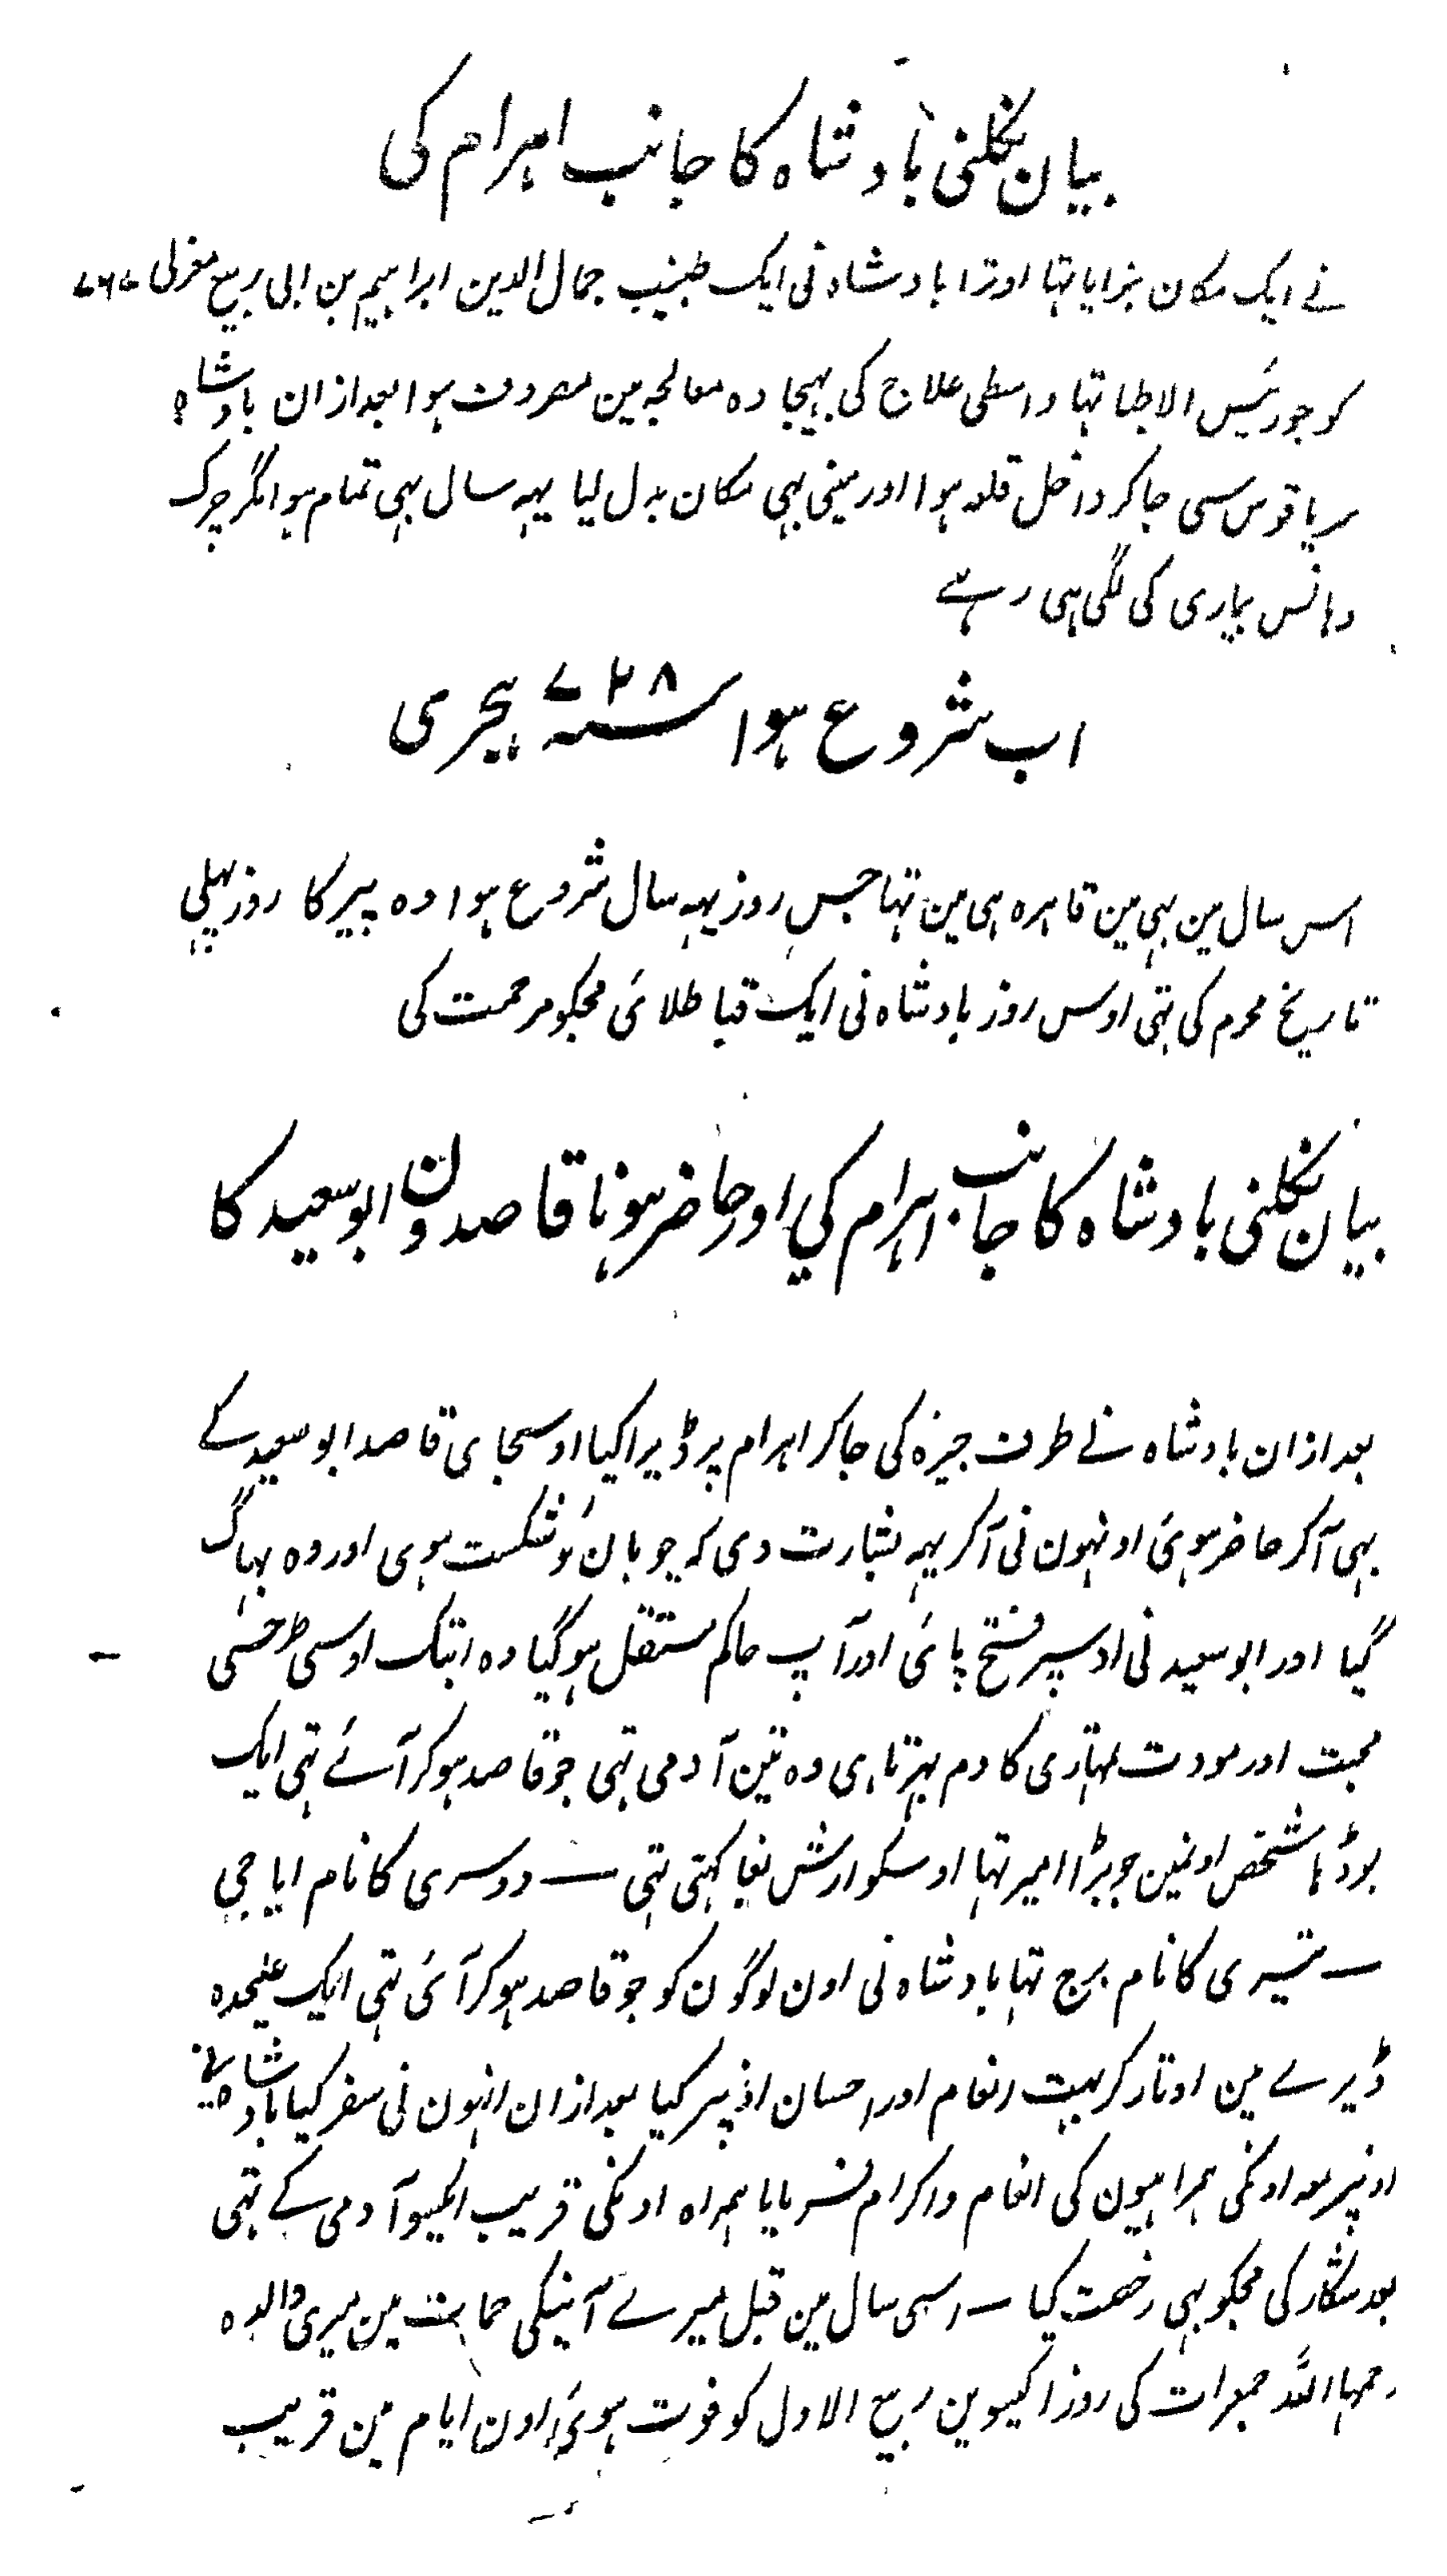 بیان نکلنی بادشاہ کا جانب اہرام کی
نے ایک مکان بنوایا تہا اوترا بادشاہ نی ایک طبیب جمال الدین ابراہیم بن ابی ربیع مغربی
کو جو رئیس الاطبا تہا واسطی علاج کی بہیجا وہ معالجہ مین مصروف ہوا بعد ازان بادشاہ
سریاقوس سی جاکر داخل قلعہ ہوا اور مینی بہی مکان بدل لیا یہہ سال بہی تمام ہوا مگر
دہانس بیماری کی لگی ہی رہے
اب شروع ہوا سنہ ۷۲۸ ہجری
اس سال مین بہی مین قاہرہ ہی مین تہا جس روز یہہ سال شروع ہوا وہ پیر کا روز پہلی
تاریخ محرم کی تہی اوس روز بادشاہ نی ایک قبا طلائی مجکو مرحمت کی
بیان نکلنی بادشاہ کا جانب اہرام کی اور حاضر ہونا قاصدون ابو سعید کا
بعد ازان بادشاہ نے طرف جیزہ کی جاکر اہرام پر ڈیرا کیا اوسجای قاصد ابو سعید کے
بہی آکر حاضر ہوئی اونہون نی آکر یہہ بشارت دی کہ جوبان کو شکست ہوی اور وہ بہاگ
گیا اور ابو سعید نی اوسپر فتح پائی اور آپ حاکم مستقل ہوگیا وہ ابتک اوسی طرحسی
محبت اور مودت تمہاری کا دم بہرتا ہی وہ تین آدمی تہی جو قاصد ہوکر آئے تہی ایک
بوڈہا شخص اونمین جو بڑا امیر تہا اوسکو ارش بغا کہتی تہی — دوسری کا نام ایاجی
— تیسری کا نام برج تہا بادشاہ نی اون لوگون کو جو قاصد ہوکر آئی تہی ایک علیحدہ
ڈیرے مین اوتار کر بہت انعام اور احسان اونپر کیا بعد ازان انہون نی سفر کیا بادشاہ نے
اونپر معہ اونکی ہمراہیون کی انعام واکرام فرمایا ہمراہ اونکی قریب ایکسو آدمی کے تہی
بعد شکار کی مجکو بہی رخصت کیا — اسی سال مین قبل میرے آنیکی حمات مین میری والدہ
رحمہا اللہ جمعرات کی روز اکیسوین ربیع الاول کو فوت ہوئی اون ایام مین قریب